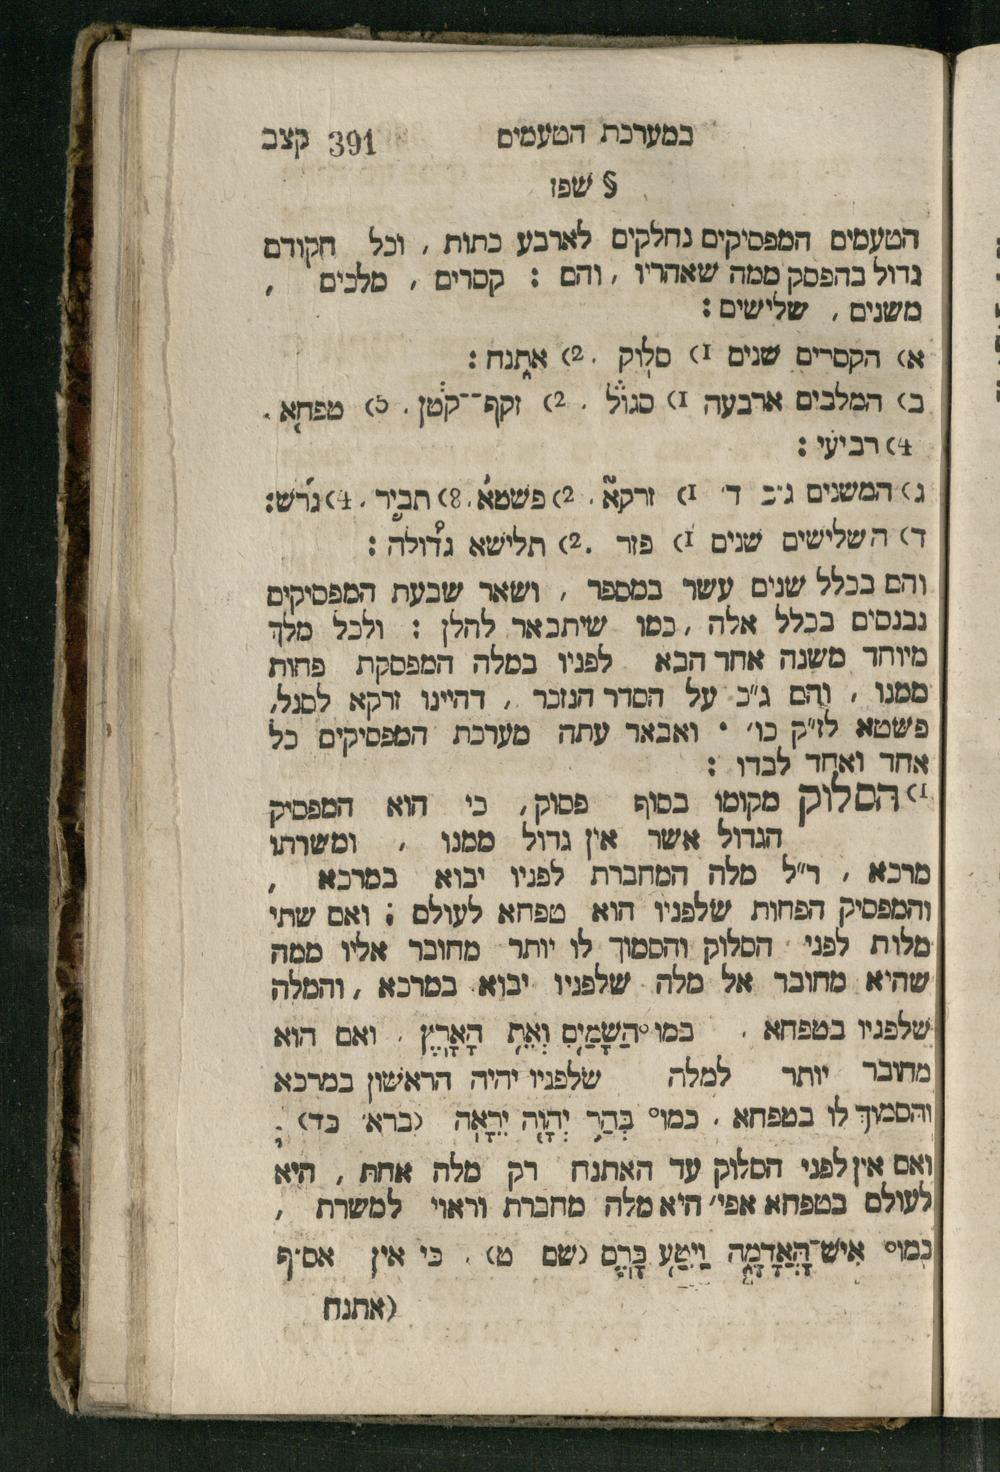 במערכת הטעמים 391 קצב
§ שפז
הטעמים המפסיקים נחלקים לארבע כתות , וכל הקודם
גדול בהפסק ממה שאחריו , והם : קסרים , מלכים ,
משנים , שלישים :
א) הקסרים שנים 1) סלוק . 2) אתנח :
ב) המלכים ארבעה 1) סגול . 2) זקף־־קטן . 3) טפחא .
4) רביעי :
ג) המשנים ג״כ ד׳ 1) זרקא . 2) פשטא . 3) תביר . 4) גרש :
ד) השלישים שנים 1) פזר . 2) תלישא גדולה :
והם בכלל שנים עשר במספר , ושאר שבעת המפסיקים
נכנסים בכלל אלה , כמו שיתבאר להלן : ולכל מלך
מיוחד משנה אחר הבא לפניו במלה המפסקת פחות
ממנו , והם ג״כ על הסדר הנזכר , דהיינו זרקא לסגל,
פשטא לז״ק כו׳ • ואבאר עתה מערכת המפסיקים כל
אחד ואחד לבדו :
1) הסלוק מקומו בסוף פסוק, כי הוא המפסיק
הגדול אשר אין גדול ממנו , ומשרתו
מרכא , ר״ל מלה המחברת לפניו יבוא במרכא ,
והמפסיק הפחות שלפניו הוא טפחא לעולם ; ואם שתי
מלות לפני הסלוק והסמוך לו יותר מחובר אליו ממה
שהיא מחובר אל מלה שלפניו יבוא במרכא , והמלה
שלפניו בטפחא . כמו° הַשָּׁמַ֖יִם וְאֵ֥ת הָאָֽרֶץ . ואם הוא
מחובר יותר למלה שלפניו יהיה הראשון במרכא
והסמוך לו בטפחא . כמו° בְּהַ֥ר יְהוָ֖ה יֵרָאֶֽה (ברא׳ כד) ;
ואם אין לפני הסלוק עד האתנח רק מלה אחת , היא
לעולם בטפחא אפי׳ היא מלה מחברת וראוי למשרת ,
כמו° אִישׁ־הָֽאֲדָמָ֑ה וַיִּטַּ֖ע כָּֽרֶם (שם ט) . כי אין אס״ף
(אתנח